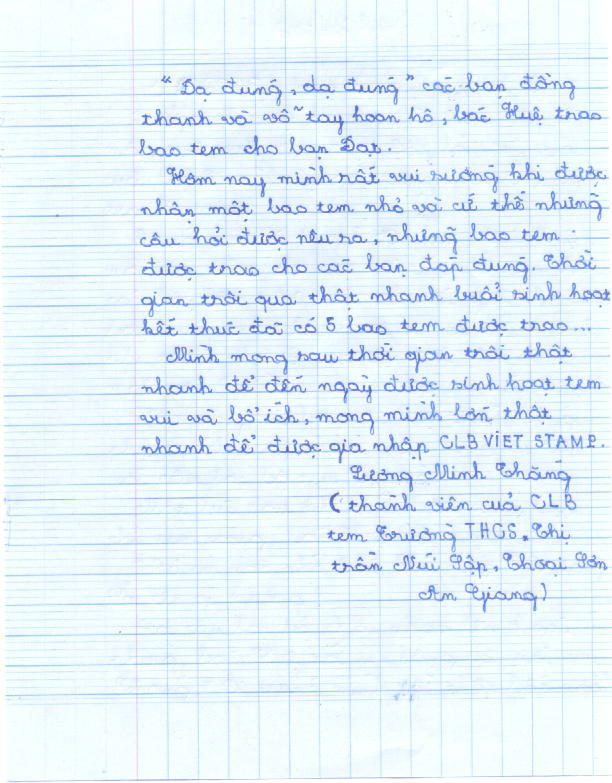 “Dạ đúng, dạ đúng” các bạn đồng
thanh và vỗ tay hoan hô, bác Huệ trao
bao tem cho bạn Đạt.
Hôm nay mình rất vui sướng khi được
nhận một bao tem nhỏ và cứ thế những
câu hỏi được nêu ra, những bao tem
được trao cho các bạn đáp đúng. Thời
gian trôi qua thật nhanh buổi sinh hoạt
kết thúc đã có 5 bao tem được trao...
Mình mong sau thời gian trôi thật
nhanh để đến ngày được sinh hoạt tem
vui và bổ ích, mong mình lớn thật
nhanh để được gia nhập CLB VIET STAMP.
Lương Minh Thắng
(thành viên của CLB
tem Trường THCS. Thị
trấn Núi Sập, Thoại Sơn
An Giang)